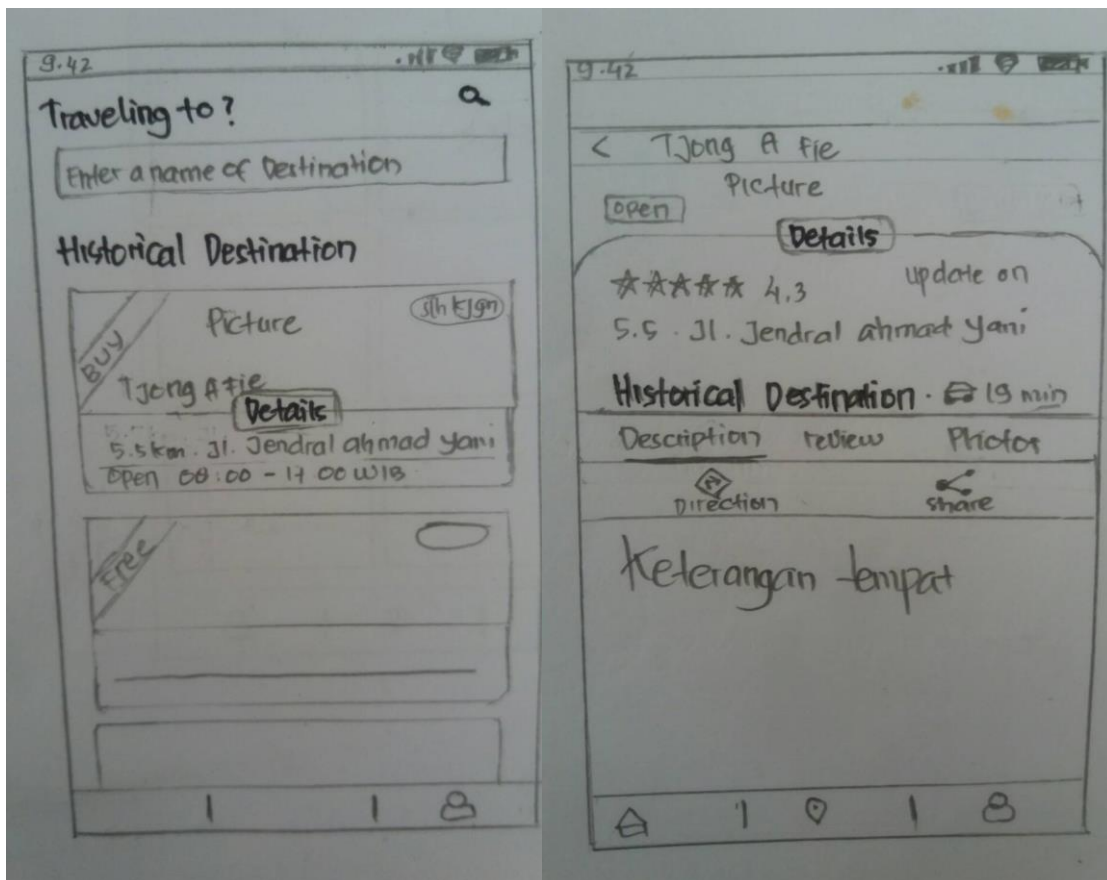 9.42
Traveling to?
Enter a name of Destination
Historical Destination
BUY
Picture
Tjong A Fie
Details
5.5 km. Jl. Jendral ahmad yani
Open 08:00 - 17 00 WIB
Free
9.42
< Tjong A Fie
Picture
Open
Details
4.3 update on
5.5. Jl. Jendral ahmad yani
Historical Destination. 19 min
Description review Photos
Direction share
Keterangan tempat